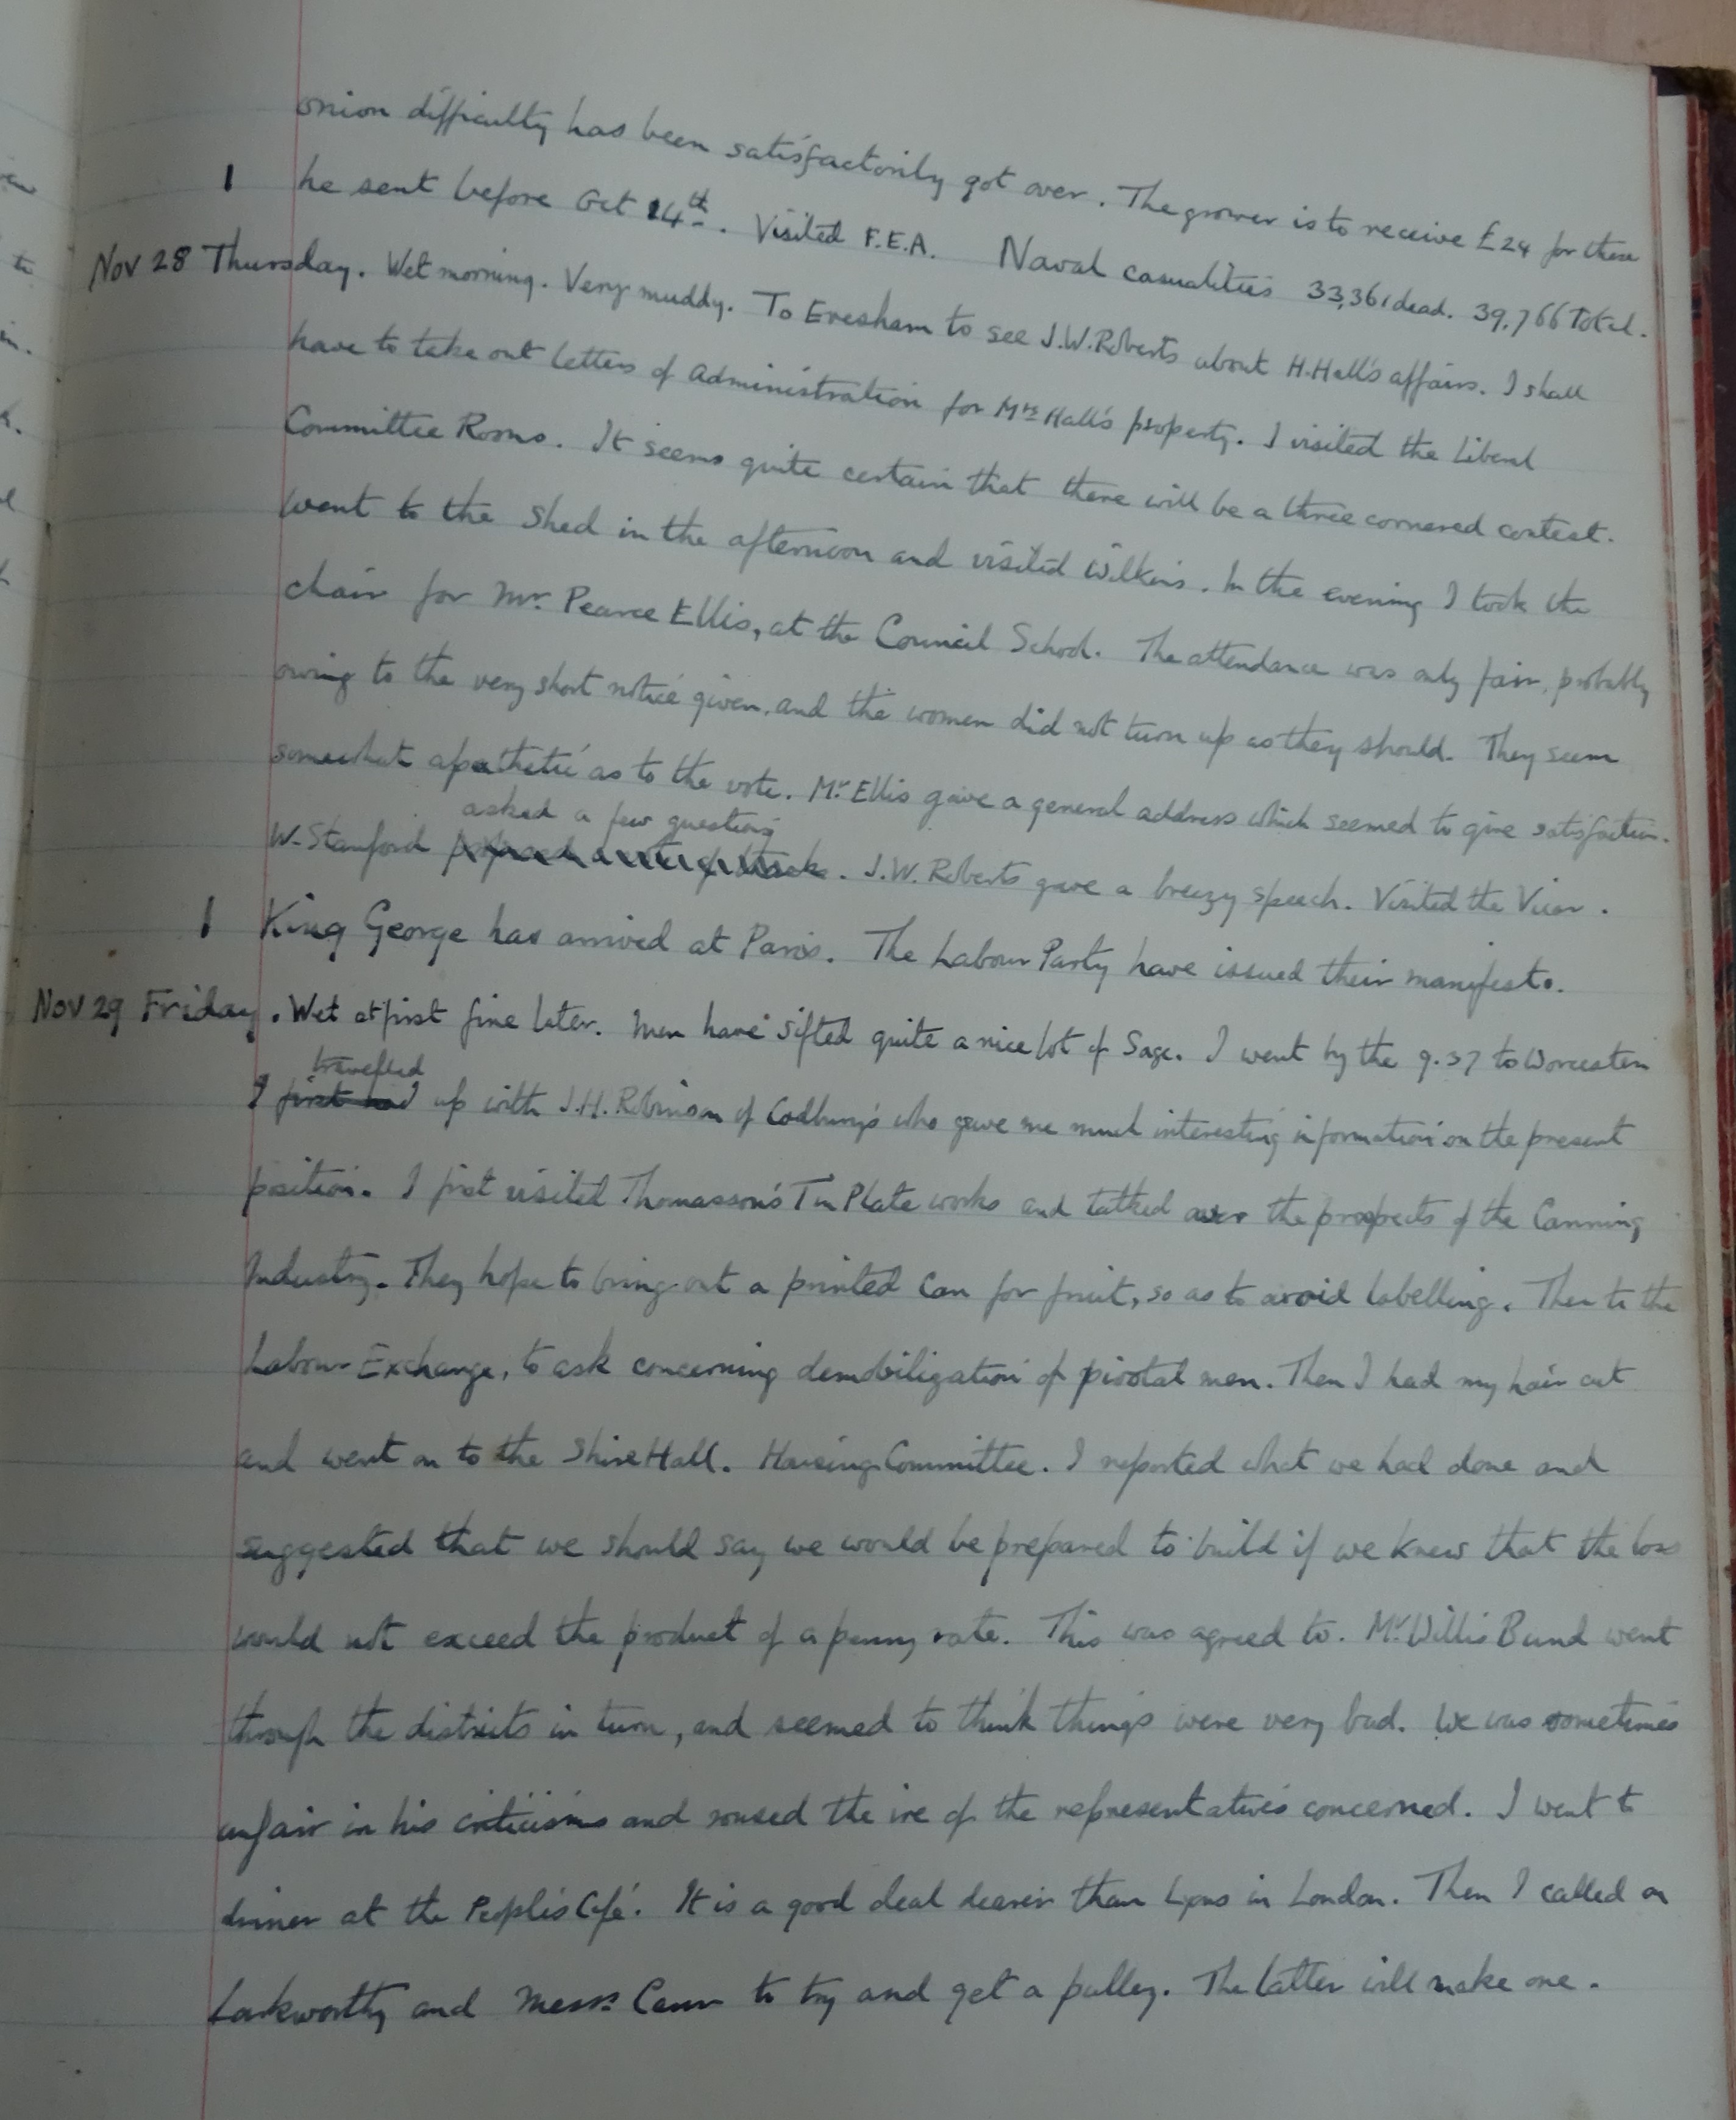 onion difficulty has been satisfactorily got over. The grower is to receive £24 for those
1 he sent before Oct 24th. Visited F.E.A. Naval casualities 33,361 dead. 39,766 Total.
Nov 28 Thursday. Wet morning. Very muddy. To Evesham to see J.W. Roberts about H. Hall's affairs. I shall
have to take out letters of administration for Mrs Hall's property. I visited the Liberal
Committee Rooms. It seems quite certain that there will be a three cornered contest.
Went to the Shed in the afternoon and visited Wilkins. In the evening I took the
chair for Mr. Pearce Ellis, at the Council School. The attendance was only fair, probably
owing to the very short notice given, and the women did not turn up as they should. They seem
somewhat apathetic as to the vote. Mr Ellis gave a general address which seemed to give satisfaction.
asked a few questions
W. Stanford . J.W. Roberts gave a breezy speech. Visited the Vicar.
1 King George has arrived at Paris. The Labour Party have issued their manifesto.
Nov 29 Friday. Wet at first fine later. Men have sifted quite a nice lot of Sage. I went by the 9.37 to Worcester
travelled
I first had up with J.H. Robinson of Cadbury's who gave me much interesting information on the present
position. I first visited Thomasson's Tin Plate works and talked over the prospects of the Canning
Industry. They hope to bring out a printed Can for fruit, so as to avoid labelling. Then to the
Labour Exchange, to ask concerning demobilization of pivotal men. Then I had my hair cut
and went on to the Shire Hall. Housing Committee. I reported what we had done and
suggested that we should say we would be prepared to build if we knew that the loss
would not exceed the product of a penny rate. This was agreed to. Mr Willis Bund went
through the districts in turn, and seemed to think things were very bad. We was sometimes
unfair in his criticisms and roused the ire of the representatives concerned. I went to
dinner at the People's Café. It is a good deal dearer than Lyons in London. Then I called on
Larkworthy and Messrs Cann to try and get a pulley. The latter will make one.